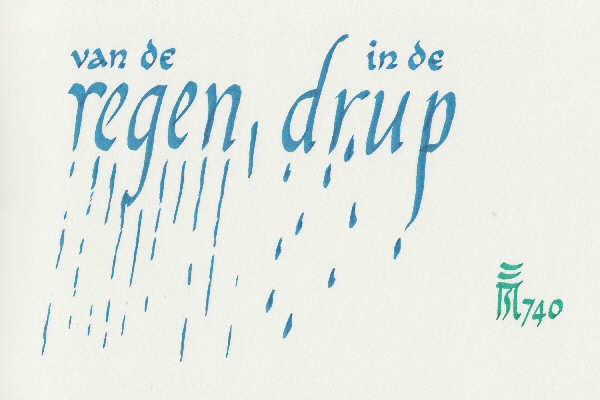 van de
regen
in de
drup
740